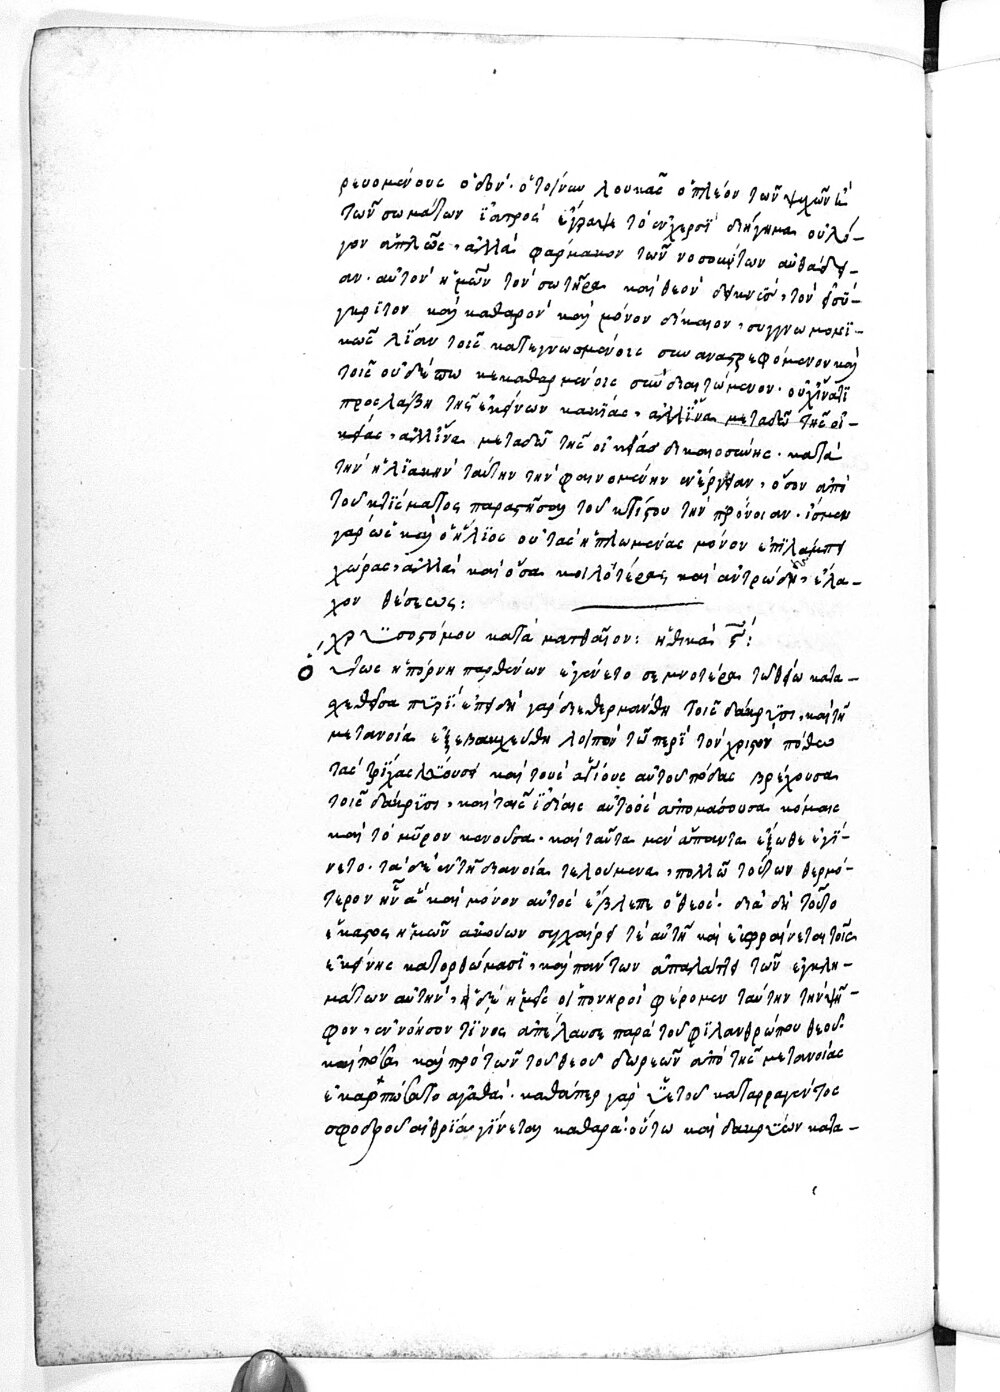 ρευομένους ὁδόν· ὅτοίνυν λουκᾶς ὁ πλέον τῶν ψυχῶν ἢ
τῶν σωμάτων ἰατρὸς ἔγραψε τὸ ἐν χερσὶ διήγημα οὐ λό-
γον ἁπλῶς, ἀλλὰ φάρμακον τῶν νοσούντων
αν· αὐτὸν ἡμῶν τὸν σωτῆρα καὶ θεὸν δεικνὺς, τὸν ἀσύ-
γκριτον καὶ καθαρὸν καὶ μόνον δίκαιον, συγγνωμονι-
κῶς λίαν τοῖς κατεγνωσμένοις συναναστρεφόμενον καὶ
τοῖς οὐδέπω κεκαθαρμένοις συνδιαιτώμενον· οὐχ ἵνα τι
προσλάβῃ τῆς ἐκείνων κακίας, ἀλλ' ἵνα μεταδῶ τῆς οἰ-
κείας, ἀλλ' ἵνα μεταδῶ τῆς οἰκείας δικαιοσύνης· κατὰ
τὴν ἡλιακὴν ταύτην τὴν φαινομένην ἐνέργειαν, ὅσον ἀπὸ
τοῦ κτίσματος παραστῆσαι τοῦ κτίστου τὴν πρόνοιαν· ἴσμεν
γὰρ ὡς καὶ ὁ ἥλιος οὐ τὰς ἡπλωμένας μόνον ἐπιλάμπει
χώρας, ἀλλὰ καὶ ὅσαι κοιλότεραι καὶ ἀντρώδη, ἔλα-
χον θέσεως:
χρυσοστόμου κατὰ ματθαῖον: ἠθικὰ ϛ΄:
Οὕτως ἡ πόρνη παρθένων ἐγένετο σεμνοτέρα τῷ θείῳ κατα-
σχεθεῖσα πυρί· ἐπειδὴ γὰρ διεθερμάνθη τοῖς δάκρυσι, καὶ τῇ
μετανοία ἐξεβακχεύθη λοιπὸν τῷ περὶ τὸν χριστὸν πόθω
τὰς τρίχας λύουσα καὶ τοὺς ἁγίους αὐτοῦ πόδας βρέχουσα
τοῖς δάκρυσι, καὶ ταῖς ἰδίαις αὐτοὺς ἀπομάσσουσα κόμαις
καὶ τὸ μῦρον κενοῦσα· καὶ ταῦτα μὲν ἅπαντα ἔξωθε ἐγί-
νετο· τὰ δὲ ἐν τῇ διανοία τελούμενα, πολλῶ τούτων θερμό-
τερον ἦν ἃ καὶ μόνον αὐτὸς ἔβλεπε ὁ θεός· διὰ δὴ τοῦτο
ἕκαστος ἡμῶν ἀκούων συγχαίρει τὲ αὐτῇ καὶ εὐφραίνεται τοῖς
ἐκείνης κατορθώμασι, καὶ πάντων ἀπαλάττει τῶν ἐγκλη-
μάτων αὐτήν, εἰ δὲ ἡμεῖς οἱ πονηροὶ φέρομεν ταύτην τὴν ψῆ-
φον, ἐννόησον τίνος ἀπέλαυσε παρὰ τοῦ φιλανθρώπου θεοῦ·
καὶ πόσα καὶ πρὸ τῶν τοῦ θεοῦ δωρεῶν ἀπὸ τῆς μετανοίας
ἐκαρπώσατο ἀγαθά· καθάπερ γὰρ ὑετοῦ καταρραγέντος
σφοδροῦ αἰθρία γίνεται καθαρὰ· οὕτω καὶ δακρύων κατα-